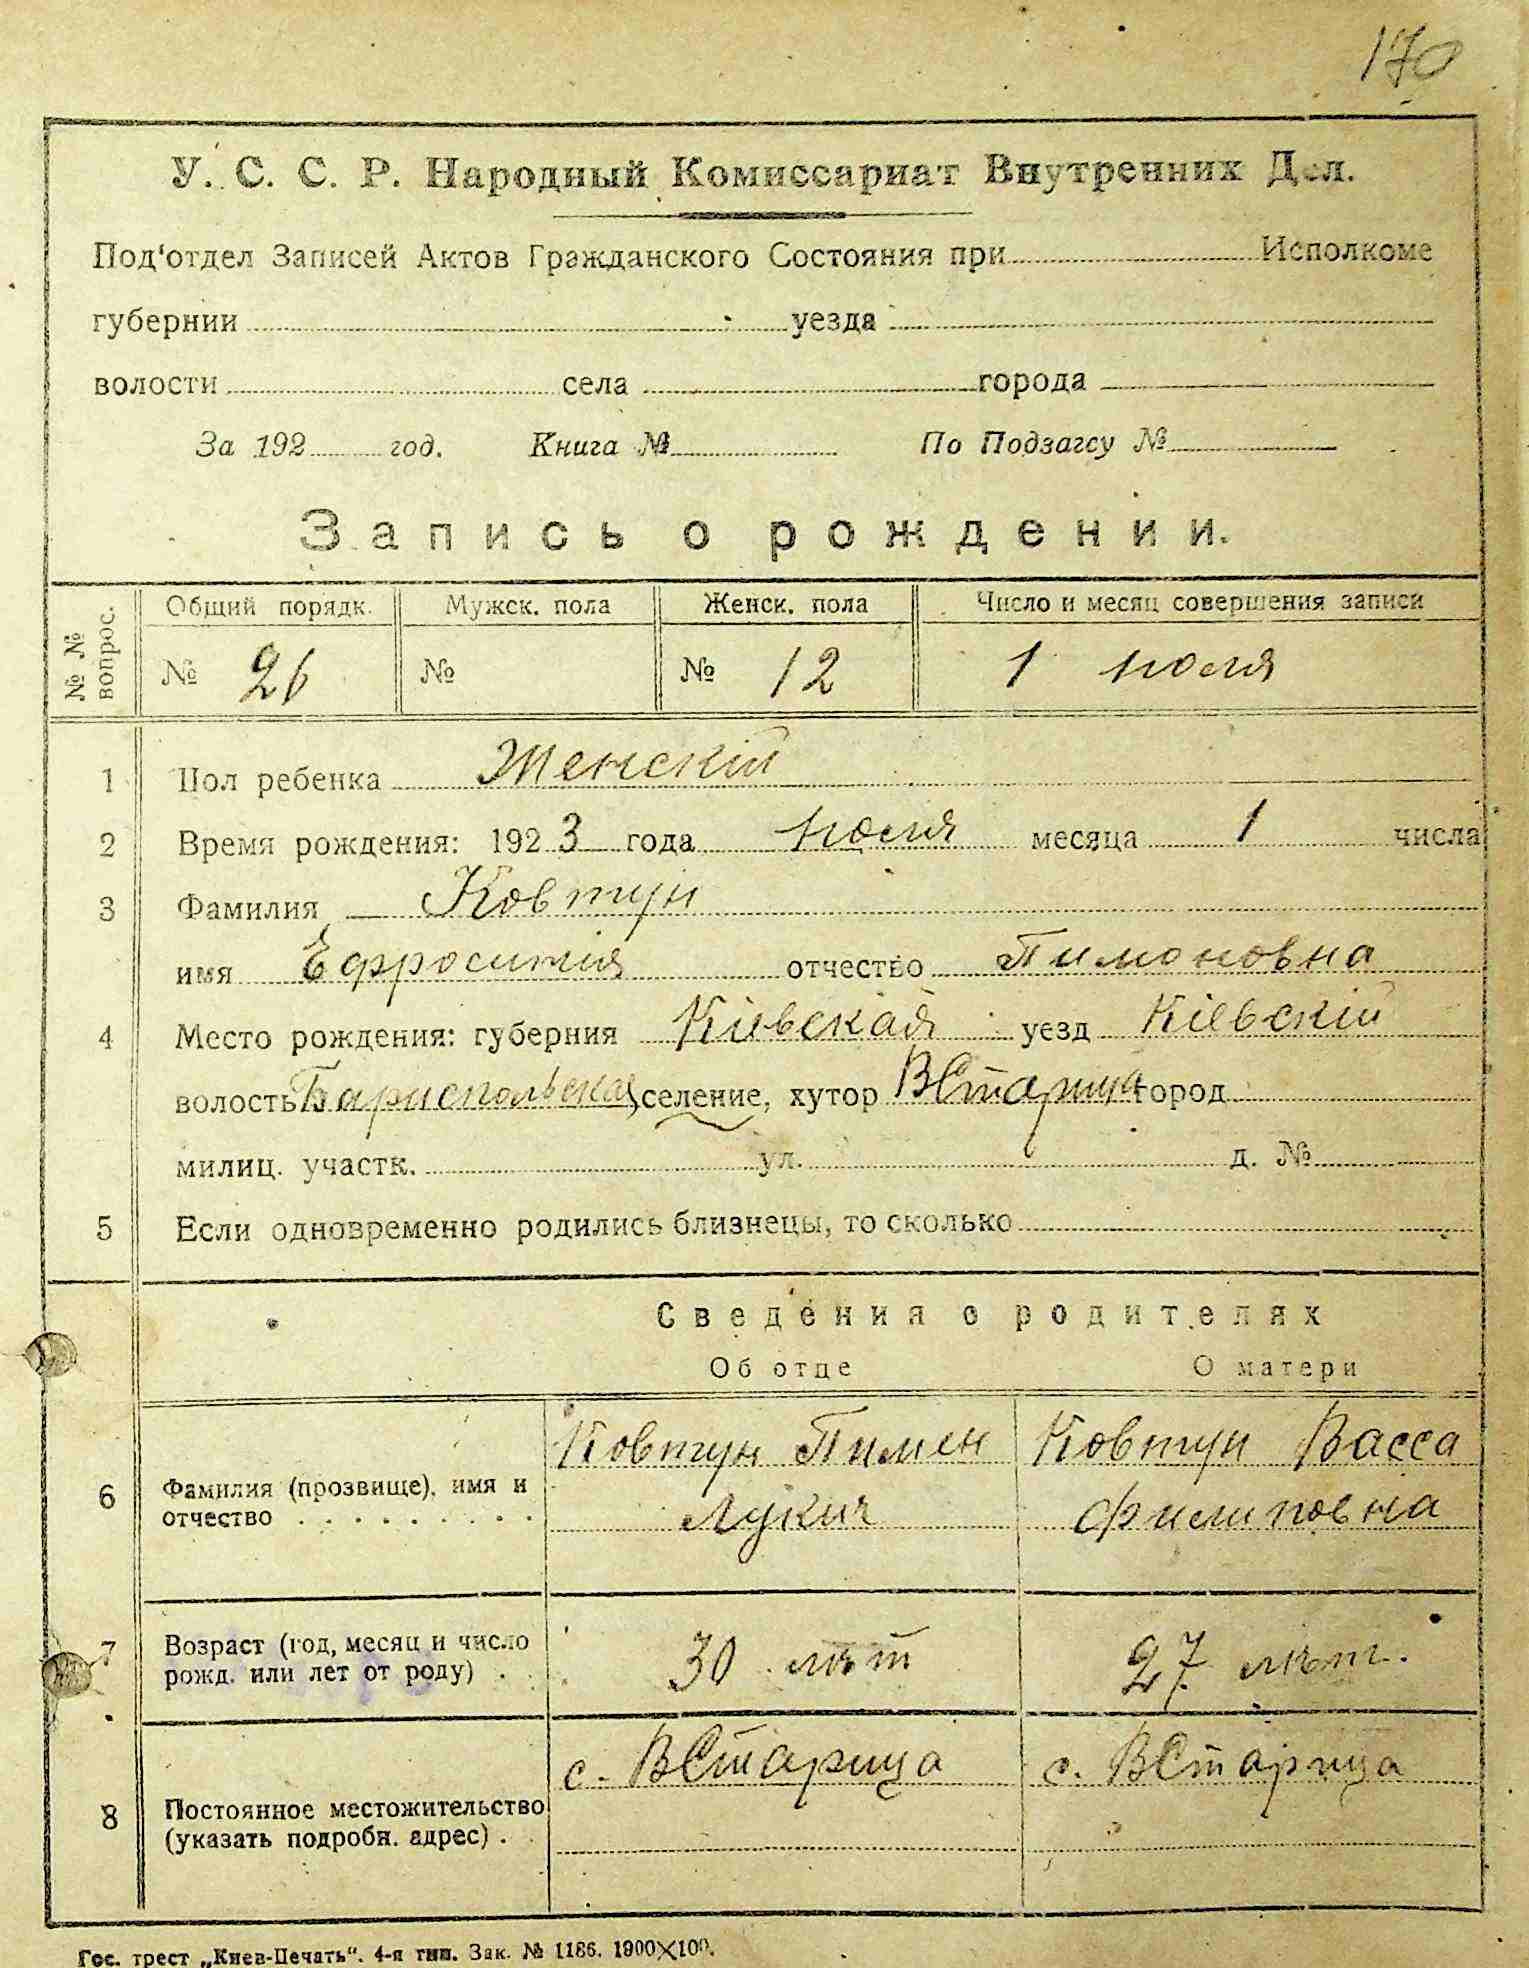 170
У. С. С. Р. Народный Комиссариат Внутренних Дел.
Под'отдел Записей Актов Гражданского Состояния при Исполкоме
губернии уезда
волости села города
За 192 год. Книга № По Подзагсу №
Запись о рождении.
№ № вопрос.
Общий порядк. Мужск. пола Женск. пола Число и месяц совершения записи
№ 26 № № 12 1 июля
1 Пол ребенка Женскій
2 Время рождения: 1923 года июля месяца 1 числа
3 Фамилия Ковтун
имя Ефросинія отчество Пимоновна
4 Место рождения: губерния Кіевская уезд Кіевскій
волость Бариспольская селение, хутор ВСтарица город
милиц. участк. ул. д. №
5 Если одновременно родились близнецы, то сколько
Сведения о родителях
Об отце О матери
Ковтун Пимен Ковтун Васса
6 Фамилия (прозвище), имя и
отчество . . . . . . . . . Лукич Филиповна
7 Возраст (год, месяц и число
рожд. или лет от роду) . . 30 лѣт 27 лѣт.
с. ВСтарица с. ВСтарица
8 Постоянное местожительство
(указать подробн. адрес) .
Гос. трест „Киев-Печать". 4-я тип. Зак. № 1186. 1900×100.